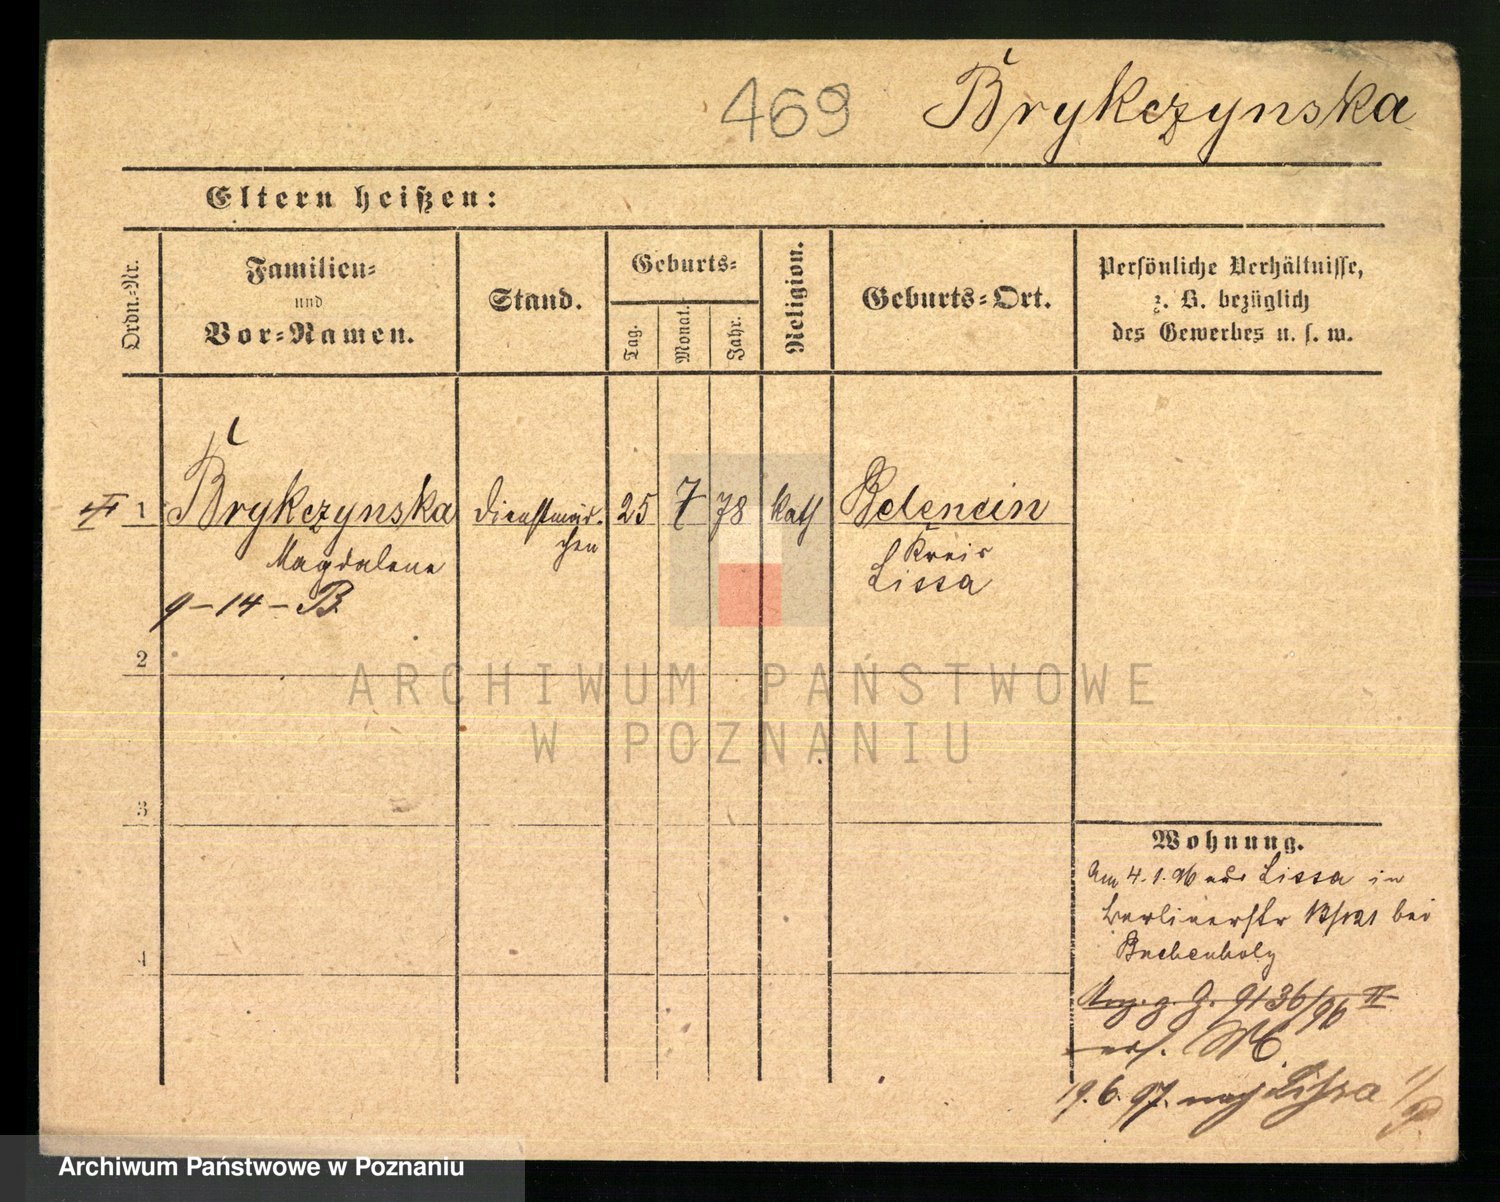 469 Brykczynska
Eltern heißen:
Ordn.-Nr.
Familien-
und
Vor-Namen.
Stand.
Geburts-
Tag.
Monat.
Jahr.
Religion.
Geburts-Ort.
Persönliche Verhältnisse,
z. B. bezüglich
des Gewerbes u. s. w.
II 1 Brykczynska Dienstmäd- 25 7 78 kath Belencin
chen Kreis
Magdalena Lissa
9-14-B.
2
3
4
Wohnung.
Am 4.1.96 aus Lissa in
Berlinerstr bei
Buchenholz
9136/96 II
19.6.97. nach Lissa
ARCHIWUM PAŃSTWOWE
W POZNANIU
Archiwum Państwowe w Poznaniu